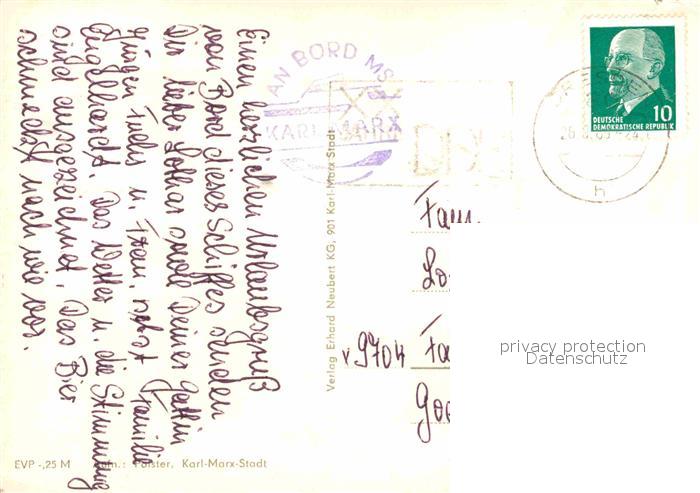 Einen herzlichen Urlaubsgruß
von Bord dieses Schiffes senden
Dir lieber Lothar sowie Deiner Gattin
Jürgen Fuchs u. Frau, nebst Familie
Engelhardt. Das Wetter u. die Stimmung
sind ausgezeichnet. Das Bier
schmeckt nach wie vor.
AN BORD MS
KARL MARX
DEUTSCHE
DEMOKRATISCHE REPUBLIK
10
h
Verlag Erhard Neubert KG, 901 Karl-Marx-Stadt
Fam.
Lo
9704
Fa
Goe
privacy protection
Datenschutz
EVP -,25 M
Förster, Karl-Marx-Stadt